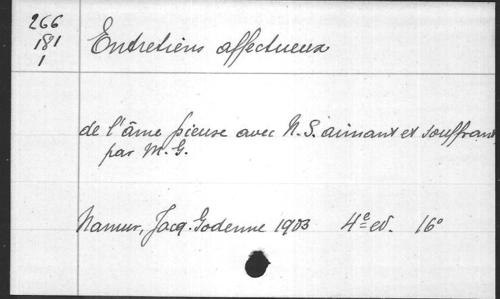 266
181
1
Entretiens affectueux
de l'âme pieuse avec N. S. aimant et souffrant,
par M. G.
Namur, Jacq. Godenne 1903 4e ed. 16°